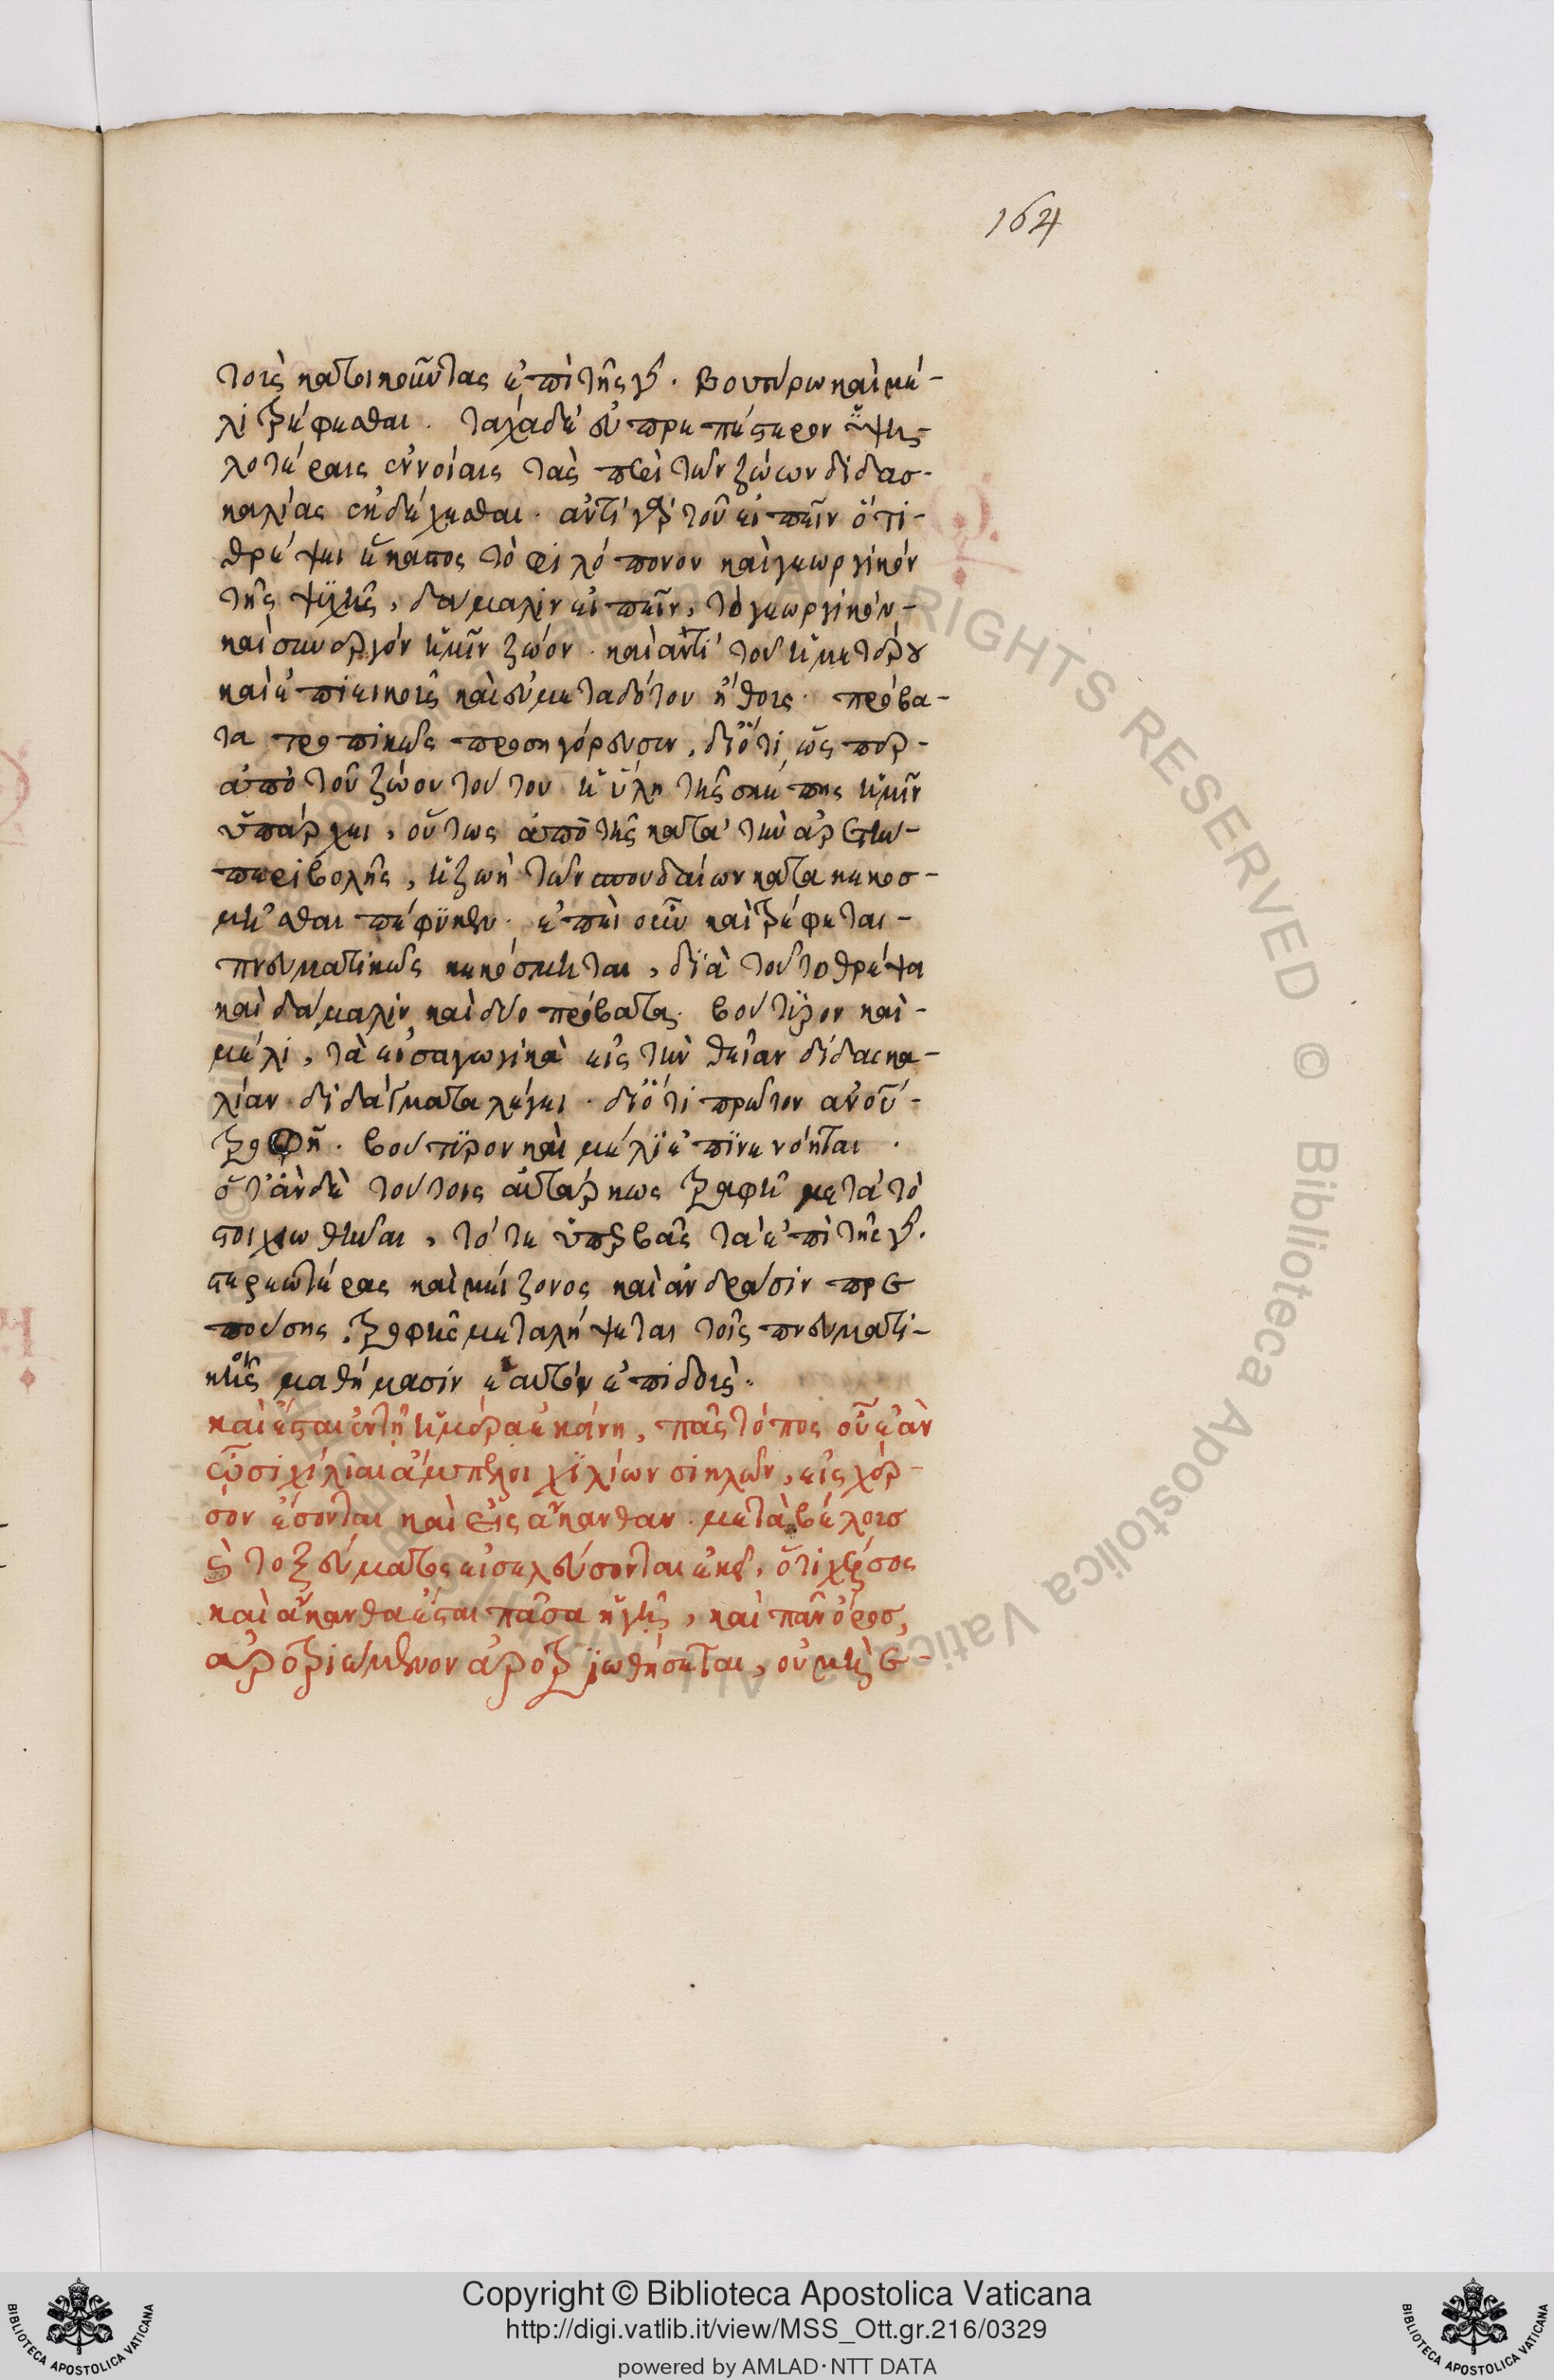 164
τοὺς κατοικοῦντας ἐπὶ τῆς γῆς. βουτύρω καὶ μέ-
λι τρέφεσθαι. τάχα δὲ εὐπρεπέστερον ὑψη-
λοτέραις ἐννοίαις τὰς περὶ τῶν ζώων διδασ-
καλίας ἐκδέχεσθαι. ἀντὶ γὰρ τοῦ εἰπεῖν ὅτι-
θρέψει ἕκαστος τὸ φιλόπονον καὶ γεωργικόν
τῆς ψυχῆς, δάμαλιν εἰπεῖν, τὸ γεωργικόν-
καὶ συνεργόν ἡμῖν ζωόν. καὶ ἀντὶ τοῦ ἡμετέρου
καὶ ἐπιεικοῦς καὶ εὐμεταδότου ἤθους. πρόβα-
τα τροπικῶς προσηγόρευσεν, διότι ὥσπερ-
ἀπὸ τοῦ ζώου τούτου ἡ ὕλη τῆς σκέπης ἡμῖν
ὑπάρχει, οὕτως ἀπὸ τῆς κατὰ τὴν ἀρετὴν-
περιβολῆς, ἡ ζωὴ τῶν σπουδαίων κατακεκοσ-
μῆσθαι πέφυκεν. ἐπεὶ οὖν καὶ τρέφεται-
πνευματικῶς κεκόσμηται, διὰ τοῦτο θρέψει
καὶ δάμαλιν καὶ δύο πρόβατα. βούτυρον καὶ-
μέλι, τὰ εἰσαγωγικὰ εἰς τὴν θείαν διδασκα-
λίαν διδάγματα λέγει. διότι πρῶτον ἀνθ'-
τροφῆ. βούτυρον καὶ μέλι ἐπινενόηται.
ὅταν δὲ τούτοις αὐτάρκως τραφῆ μετὰ τὸ
στοιχειωθῆναι, τότε ὑπερβὰς τὰ ἐπὶ τῆς γῆς.
στερεωτέρας καὶ μείζονος καὶ ἀνδράσιν πρε
πούσης τροφῆς μεταλήψεται τοῖς πνευματι-
κοῖς μαθήμασιν ἑαυτὸν ἐπιδούς.
καὶ ἔσται ἐν τῆ ἡμέρα ἐκείνη, πᾶς τόπος οὗ ἐὰν
ὦσι χίλιαι ἄμπελοι χιλίων σικλῶν, εἰς χέρ-
σον ἔσονται καὶ εἰς ἄκανθαν. μετὰ βέλους
καὶ τοξεύματος εἰσελεύσονται ἐκεῖ, ὅτι χέρσος
καὶ ἄκανθα ἔσται πᾶσα ἡ γῆ, καὶ πᾶν ὄρος,
ἀροτριώμενον ἀροτριωθήσεται, οὐ μὴ ἐ-
Copyright © Biblioteca Apostolica Vaticana
http://digi.vatlib.it/view/MSS_Ott.gr.216/0329
powered by AMLAD·NTT DATA
BIBLIOTECA APOSTOLICA VATICANA
BIBLIOTECA APOSTOLICA VATICANA